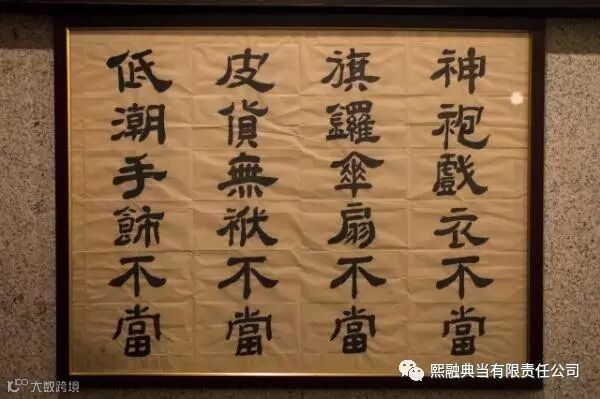 神袍戲衣不當
旗鑼傘扇不當
皮貨無袱不當
低潮手飾不當
熙融典当有限责任公司
大数跨境